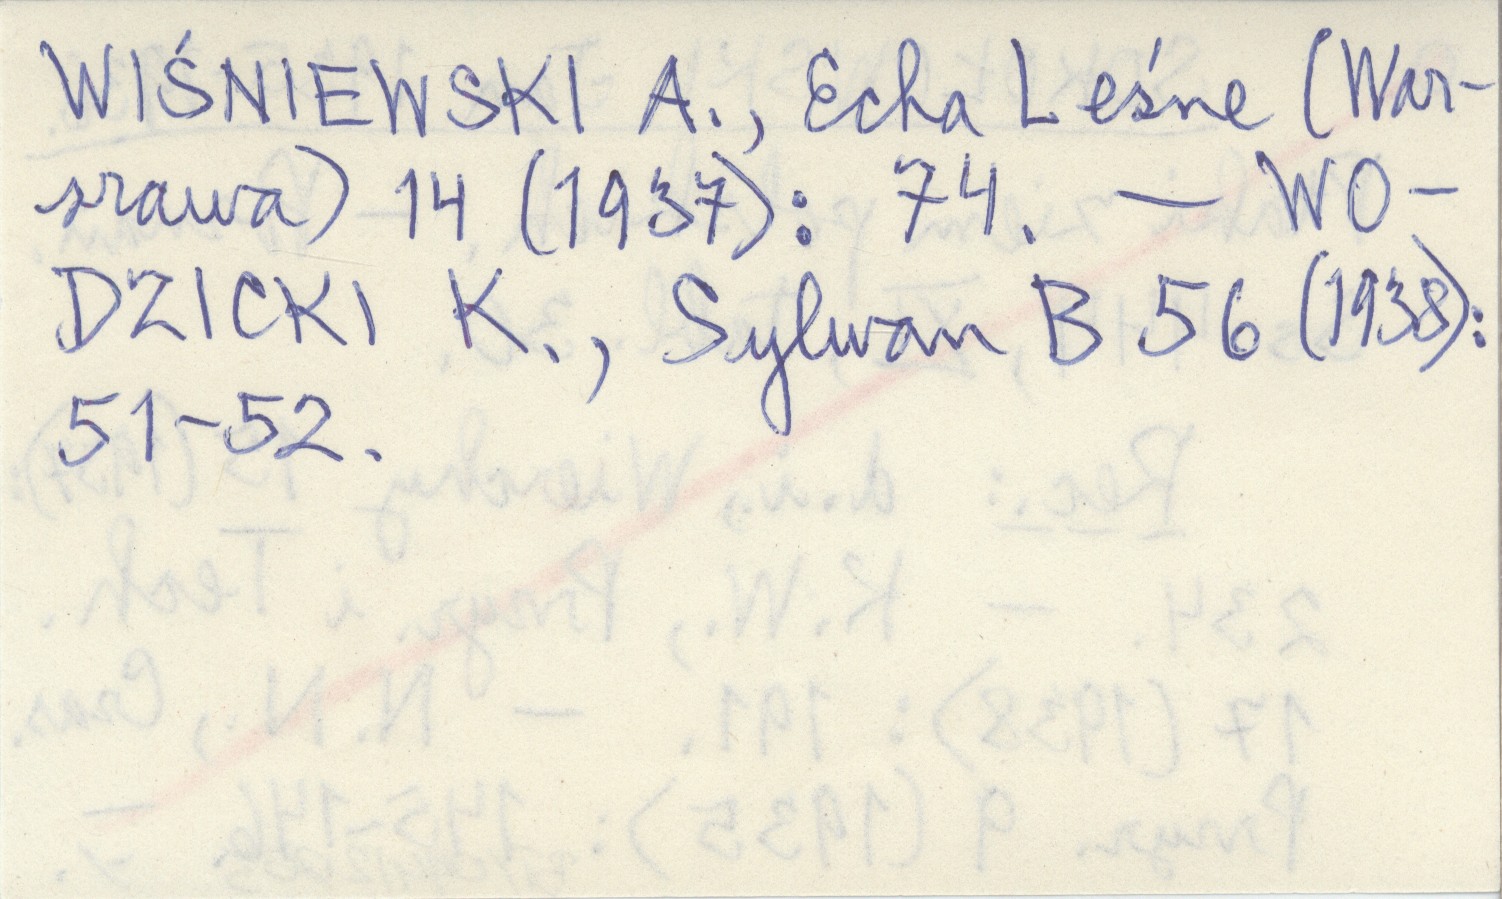 WIŚNIEWSKI A., Echa Leśne (War-
szawa) 14 (1937): 74. — WO-
DZICKI K., Sylwan B 56 (1938):
51-52.